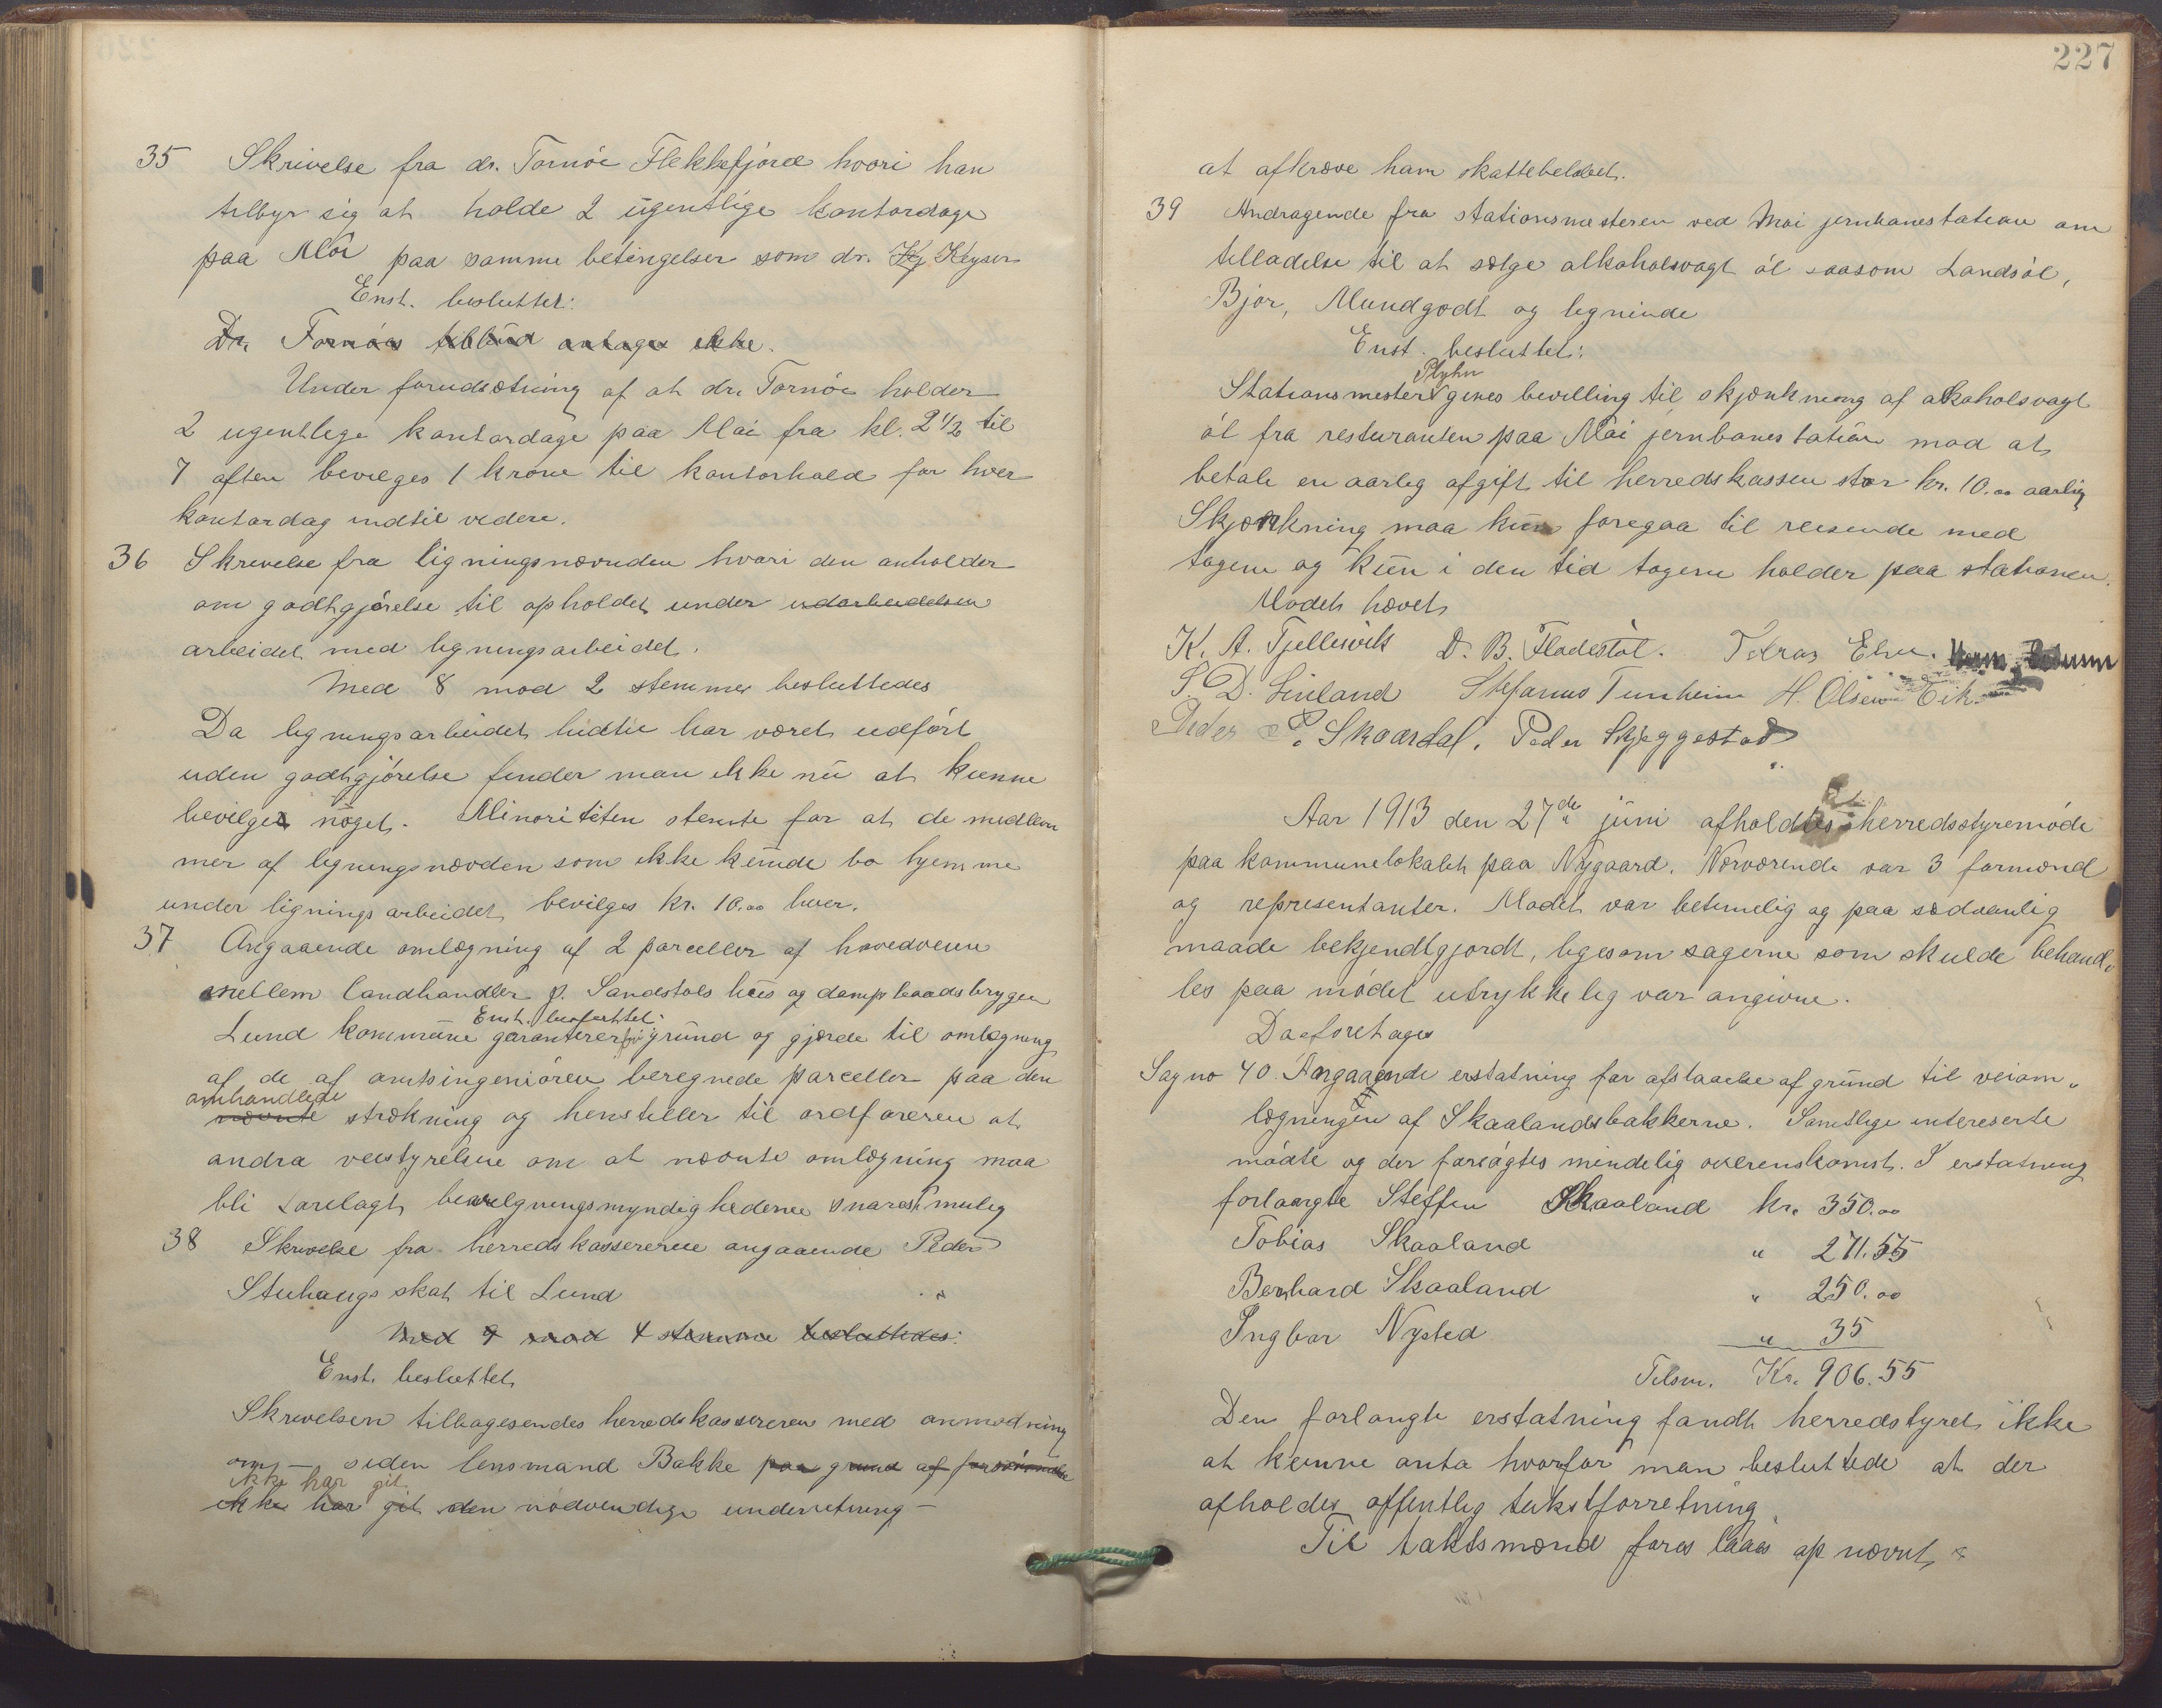 35 Skrivelse fra dr. Tornöe Flekkefjord hvori han
tilbyr sig at holde 2 ugentlige kontordage
paa Moi paa samme betingelser som dr. Ky Keyser
Enst. besluttet:
Dr. Tornöes tilbud antages ikke.
Under forudsætning af at dr. Tornöe holder
2 ugentlige kontordage paa Moi fra kl. 2 1/2 til
7 aften bevilges 1 krone til kontorhold for hver
kontordag indtil videre.
36 Skrivelse fra ligningsnævnden hvori den anholder
om godtgjörelse til opholdet under udarbeidelsen
arbeidet med ligningsarbeidet.
Med 8 mod 2 stemmer besluttedes
Da ligningsarbeidet hidtil har været udfört
uden godtgjörelse finder man ikke nu at kunne
bevilges noget. Minoriteten stemte for at de medlem
mer af ligningsnævden som ikke kunde bo hjemme
under ligningsarbeidet bevilges kr. 10.00 hver.
37 Angaaende omlægning af 2 parceller af hovedveien
mellem landhandler P. Sandstöls hus og dampbaadsbryggen
Enst. besluttet:
Lund kommune garanterer fri grund og gjærde til omlægning
af de af amtsingeniören beregnede parceller paa den
omhandlede
nævnte strækning og henstiller til ordföreren at
andra veistyrelsene om at nævnte omlægning maa
bli forelagt bevilgningsmyndighedene snarest mulig
38 Skrivelse fra herredskassereren angaaende Peder
Stuhaugs skat til Lund
Med 9 mod 4 stemme besluttedes:
Enst. besluttet
Skrivelsen tilbagesendes herredskassereren med anmodning
om – siden lensmand Bakke paa grund af
ikke har git
ikke har git den nödvendige underretning –
227
at afkræve ham skattebelöbet.
39 Andragende fra stationsmesteren ved Moi jernbanestation om
tilladelse til at sælge alkoholsvagt öl saasom Landsöl,
Bjor, Mundgodt og lignende
Enst. besluttet:
Plyhn
Stationsmester gives bevilling til skjænkning af alkoholsvagt
öl fra resturanten paa Moi jernbanestation mod at
betale en aarlig afgift til herredskassen stor kr. 10.00 aarlig
Skjænkning maa kun foregaa til reisende med
togene og kun i den tid togene holder paa stationen.
Mödet hævet
K. A. Tjellesvik D. B. Fladestöl. Tobias Eben.
S. D. Linland Stefanus Tunheim H. Olsen Eik.
Peder P. Skaardal. Peder Skjeggestad
Aar 1913 den 27de juni afholdtes herredsstyremöde
paa kommunelokalet paa Nygaard. Nærværende var 3 formænd
og representanter. Mödet var betimelig og paa sædvanlig
maade bekjendtgjordt, ligesom sagerne som skulde behand
les paa mödet utrykkelig var angivne.
Da foretages
Sag no 40. Angaaende erstatning for afstaaelse af grund til veiom
lægningen af Skaalandsbakkerne. Samtlige intereserte
mödte og der forsögtes mindelig overenskomst. I erstatning
forlangte Steffen Skaaland kr. 350.00
Tobias Skaaland " 271.55
Bernhard Skaaland " 250.00
Ingbor Nysted " 35
Tilsm. Kr. 906.55
Den forlangte erstatning fandt herredstyret ikke
at kunne anta hvorfor man besluttede at der
afholdes offentlig takstforretning
Til takstmænd foreslaaes opnævnt